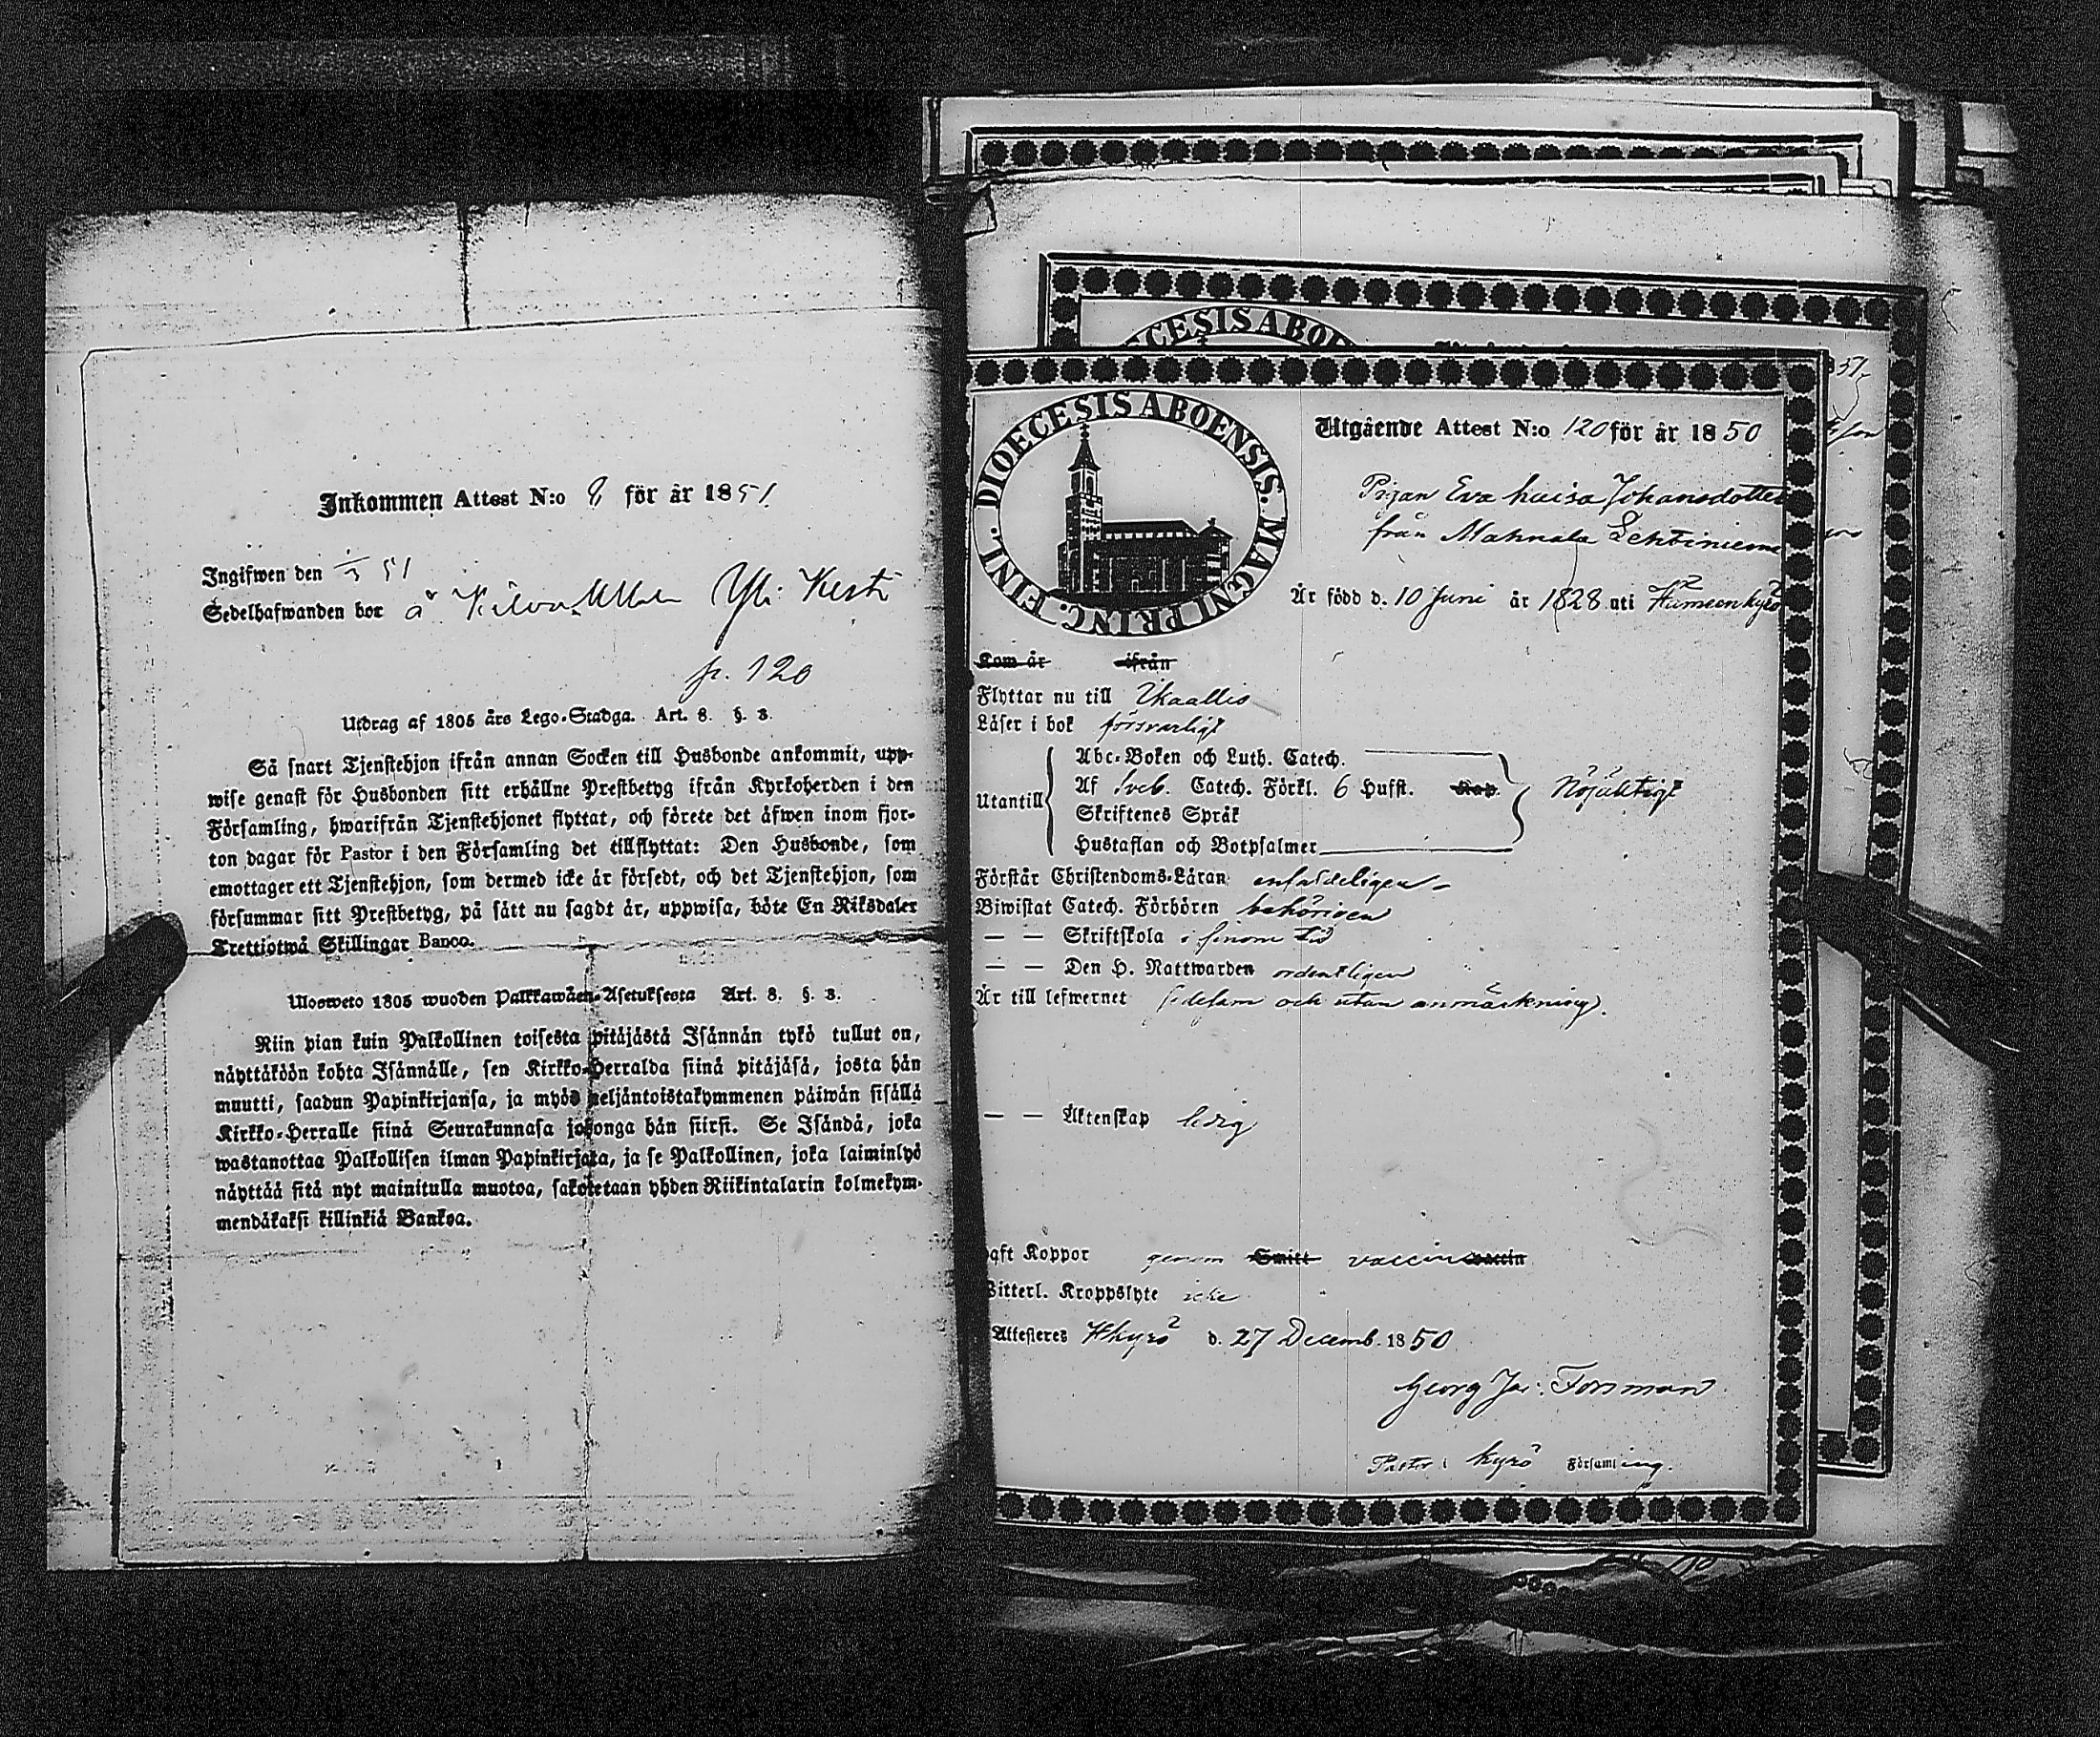 Inkommen Attest N:o 8 för år 1851.
Ingifwen den 1/3 51
Sedelhafwanden bor å Yli Kesti
p. 120
Utdrag af 1805 års Lego-Stadga. Art. 8. §. 3.
Så snart Tjenstehjon ifrån annan Socken till Husbonde ankommit, upp-
wise genast för Husbonden sitt erhållne Prestbetyg ifrån Kyrkoherden i den
Församling, hwarifrån Tjenstehjonet flyttat, och förete det äfwen inom fjor-
ton dagar för Pastor i den Församling det tillflyttat: Den Husbonde, som
emottager ett Tjenstehjon, som dermed icke är försedt, och det Tjenstehjon, som
försummar sitt Prestbetyg, på sätt nu sagdt är, uppwisa, böte En Riksdaler
Trettiotwå Skillingar Banco.
Ulosweto 1805 wuoden Palkkawäen-Asetuksesta Art. 8. §. 3.
Niin pian kuin Palkollinen toisesta pitäjästä Isännän tykö tullut on,
näyttäköön kohta Isännälle, sen Kirkko-Herralda siinä pitäjäsä, josta hän
muutti, saadun Papinkirjansa, ja myös neljäntoistakymmenen päiwän sisällä
Kirkko-Herralle siinä Seurakunnasa johonga hän siirsi. Se Isändä, joka
wastanottaa Palkollisen ilman Papinkirjata, ja se Palkollinen, joka laiminlyö
näyttää sitä nyt mainitulla muotoa, sakotetaan yhden Riikintalarin kolmekym-
mendäkaksi killinkiä Bankoa.
CESIS ABO
DIOECESIS ABOENSIS. MAGNI PRINC. FINL.
Utgående Attest N:o 120 för år 1850
Pigan Eva Luisa Johansdotter
från Mahnala Lehtiniemi
Är född d. 10 Juni år 1828 uti Tawastkyro
Kom år ifrån
Flyttar nu till Ikaalis
Läser i bok försvarligt
Abc-Boken och Luth. Catech.
Utantill Af Sveb. Catech. Förkl. 6 Hufst. Kap. Nöjaktigt
Skriftenes Språk
Hustaflan och Botpsalmer
Förstår Christendoms-Läran enfaldeligen
Biwistat Catech. Förhören behörigen
— — Skriftskola i sinom tid
— — Den H. Nattwarden ordentligen
Är till lefwernet sedesam och utan anmärkning.
— — Äktenskap ledig
Haft Koppor genom Smitt vaccin vaccin
Witterl. Kroppslyte icke
Attesteras Hkyro d. 27 Decemb. 1850
Georg Jac. Forsman
Pastor i Kyro Församling.